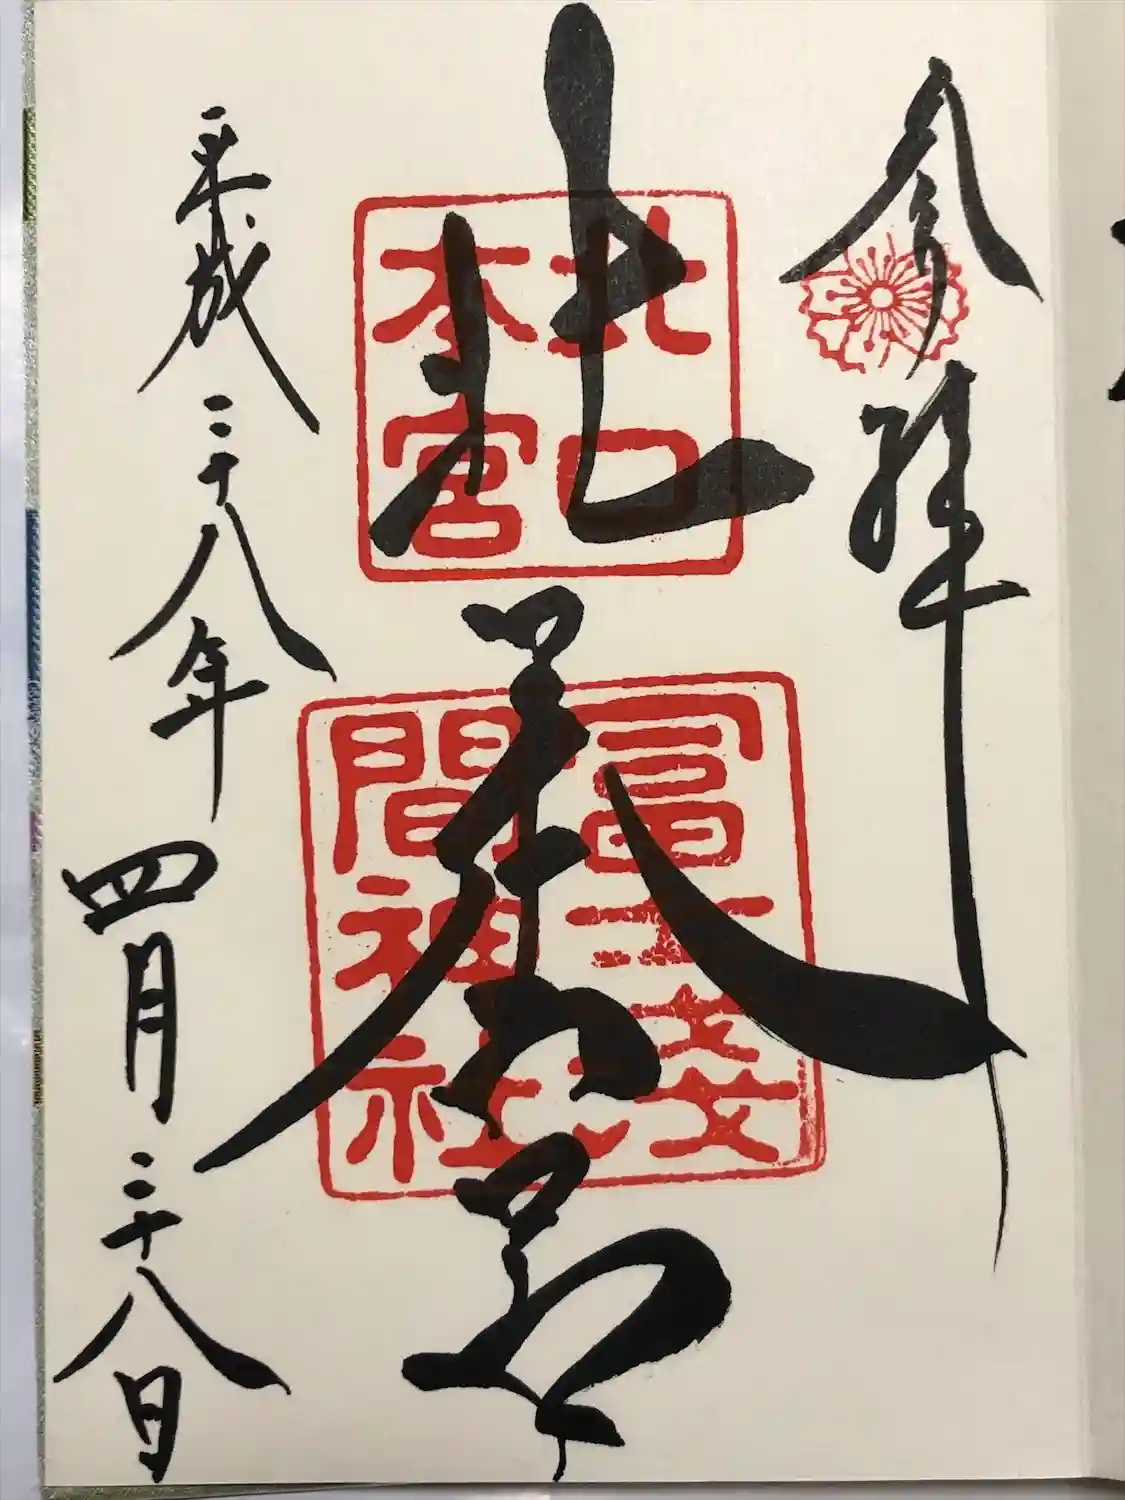 参拝
北口本宮
北口
本宮
冨士浅
間神社
平成二十八年四月二十八日